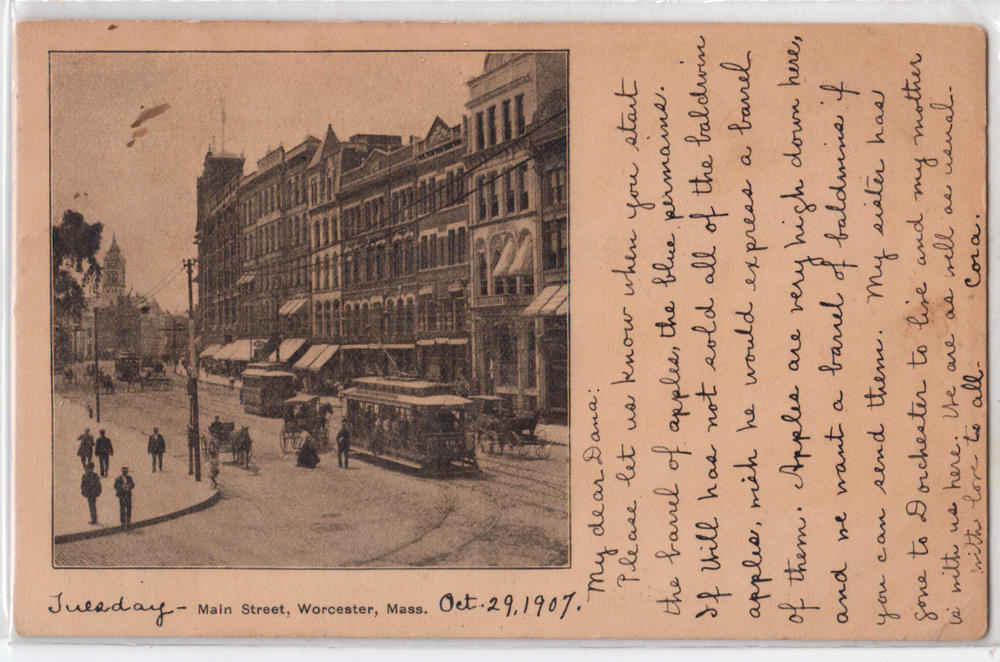 Tuesday – Main Street, Worcester, Mass. Oct. 29, 1907.
My dear Dana:
Please let us know when you start
the barrel of apples, the blue permains.
If Will has not sold all of the baldwin
apples, wish he would express a barrel
of them. Apples are very high down here,
and we want a barrel of baldwins if
you can send them. My sister has
gone to Dorchester to live and my mother
is with us here. We are as well as usual.
with love to all. Cora.